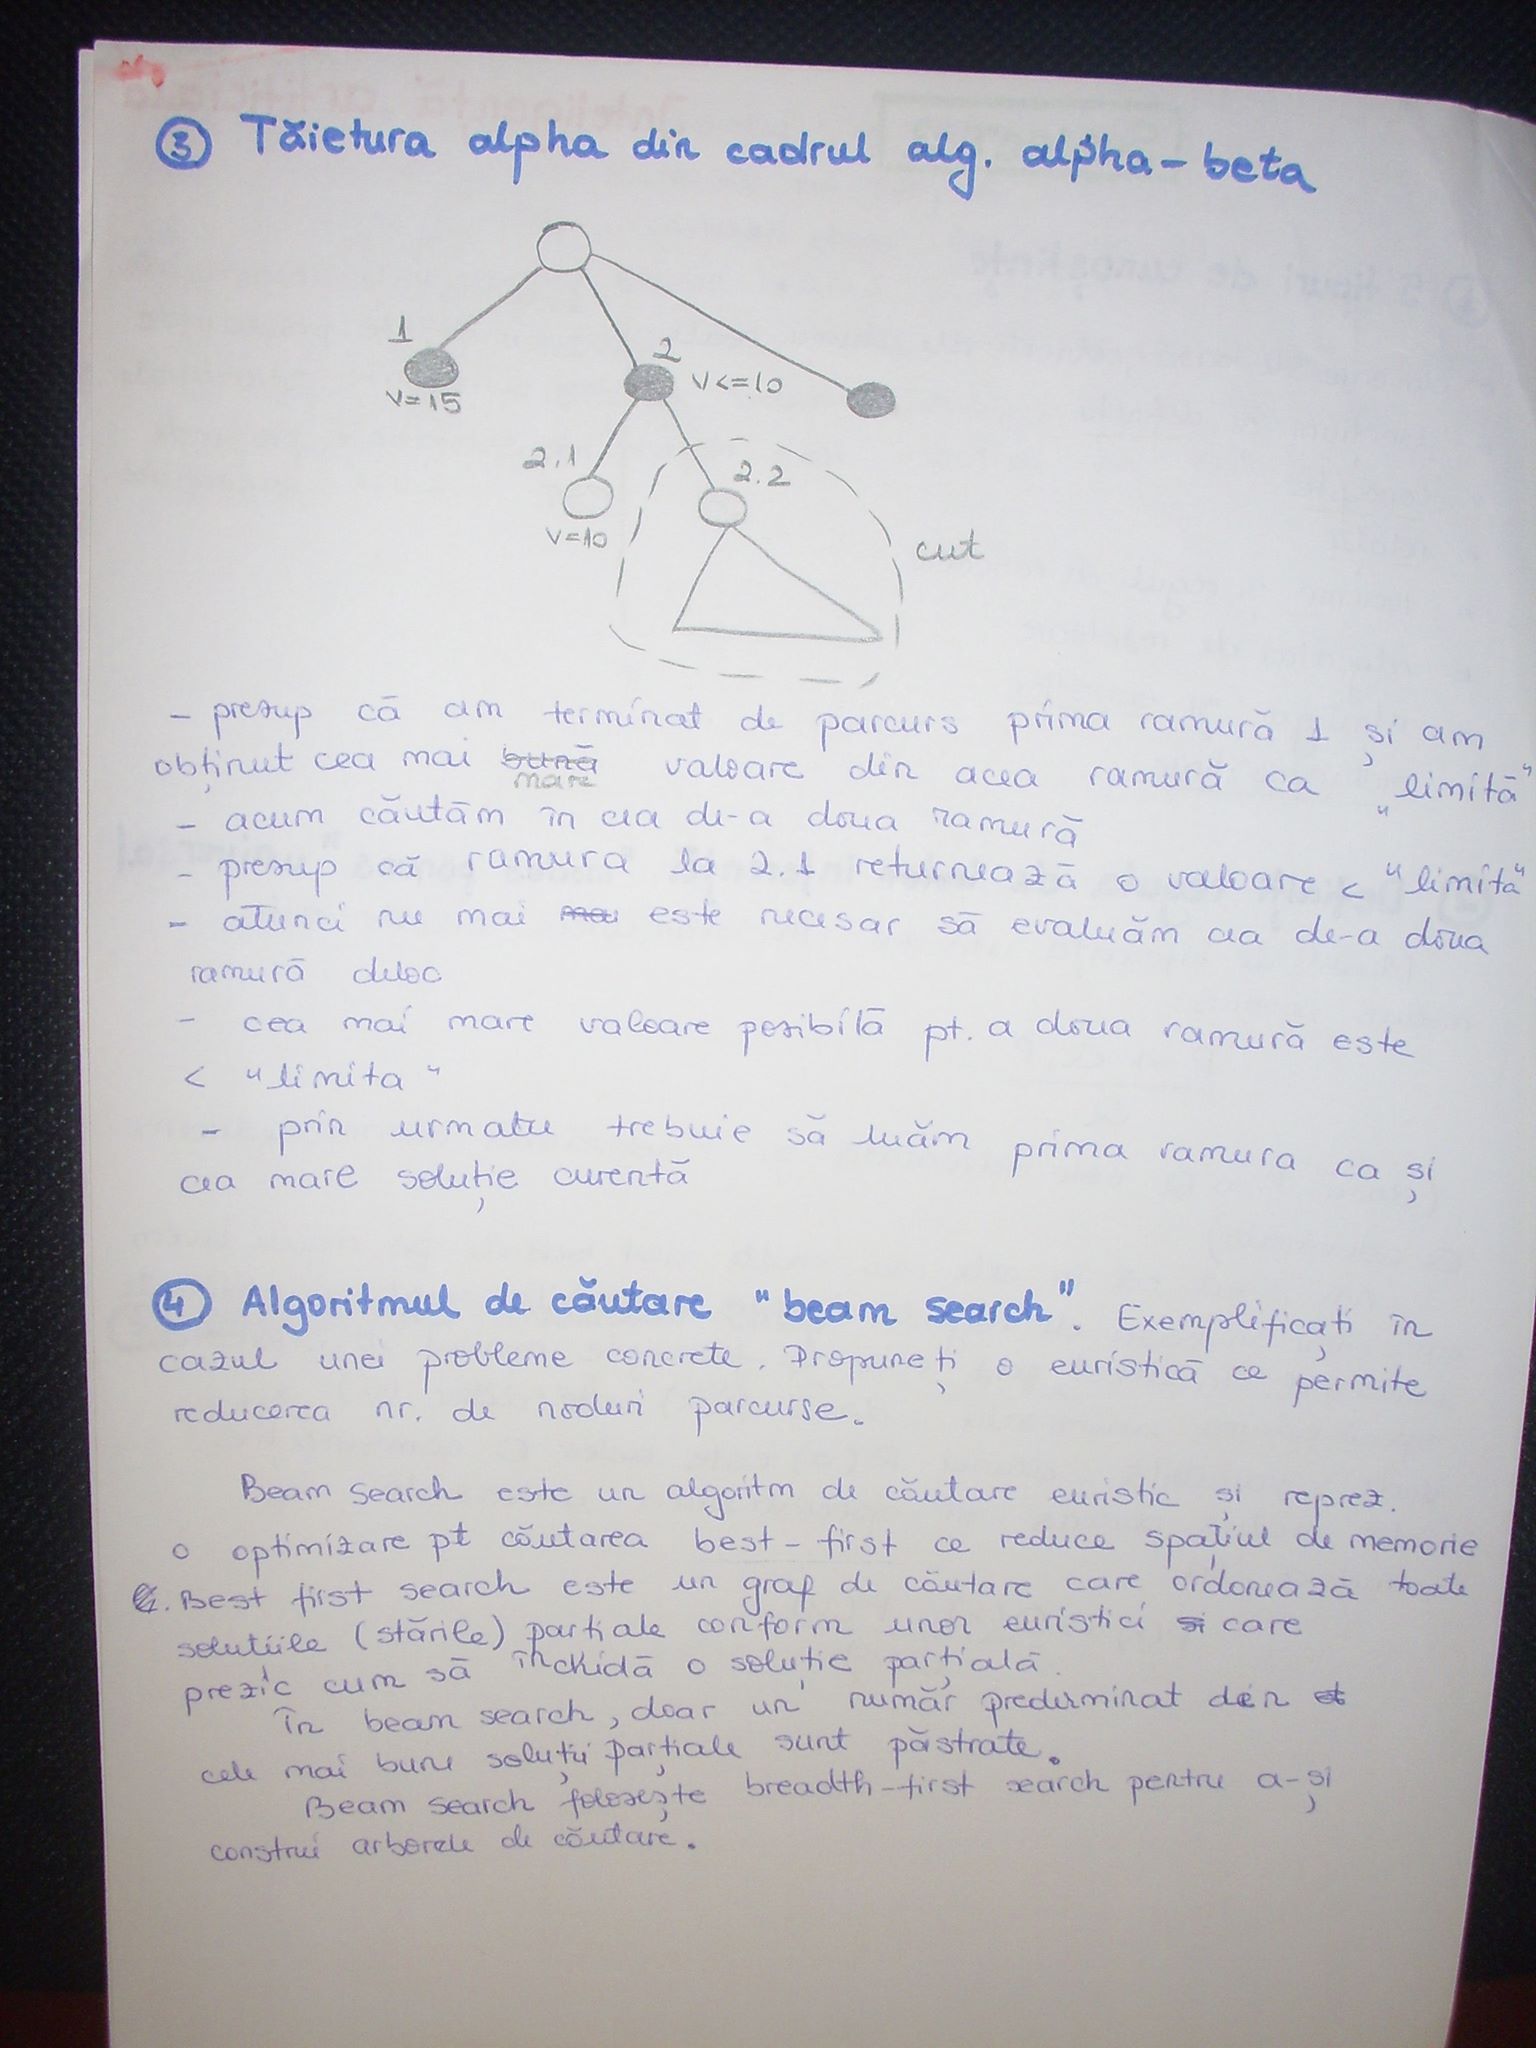 3 Tăietura alpha din cadrul alg. alpha-beta
1
v=15
2
v<=10
2.1
v=10
2.2
cut
- presup că am terminat de parcurs prima ramură 1 și am
obținut cea mai bună mare valoare din acea ramură ca "limită"
- acum căutăm în cea de-a doua ramură
- presup că ramura la 2.1 returnează o valoare < "limită"
- atunci nu mai mai este necesar să evaluăm cea de-a doua
ramură deloc
- cea mai mare valoare posibilă pt. a doua ramură este
< "limita"
- prin urmatu trebuie să luăm prima ramura ca și
cea mare soluție curentă
4 Algoritmul de căutare "beam search". Exemplificați în
cazul unei probleme concrete. Propuneți o euristică ce permite
reducerea nr. de noduri parcurse.
Beam search este un algoritm de căutare euristic și reprez.
o optimizare pt căutarea best-first ce reduce spațiul de memorie
. Best first search este un graf de căutare care ordonează toate
soluțiile (stările) parțiale conform unor euristici si care
prezic cum să închidă o soluție parțială.
În beam search, doar un număr predeminat din et
cele mai bune soluții parțiale sunt păstrate.
Beam search folosește breadth-first search pentru a-și
construi arborele de căutare.